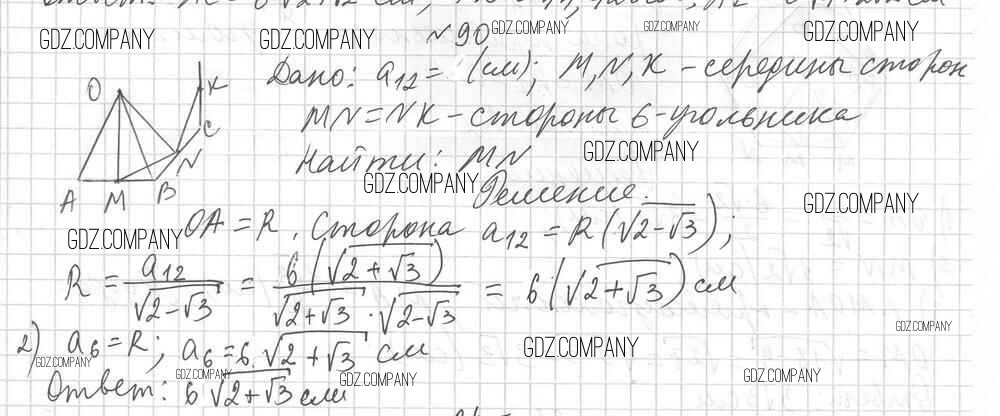 GDZ.COMPANY GDZ.COMPANY №90 GDZ.COMPANY GDZ.COMPANY GDZ.COMPANY
Дано: a₁₂ = (см); M, N, K – середины сторон
MN = NK – стороны 6-угольника
Найти: MN GDZ.COMPANY
GDZ.COMPANY Решение. GDZ.COMPANY
O K C N A M B
GDZ.COMPANY OA = R. Сторона a₁₂ = R(√2-√3);
R = a₁₂/√2-√3 = 6(√2+√3)/√2+√3 · √2-√3 = 6(√2+√3) см
2) a₆ = R; a₆ = 6·√2+√3 см GDZ.COMPANY GDZ.COMPANY
GDZ.COMPANY GDZ.COMPANY GDZ.COMPANY GDZ.COMPANY
Ответ: 6√2+√3 см